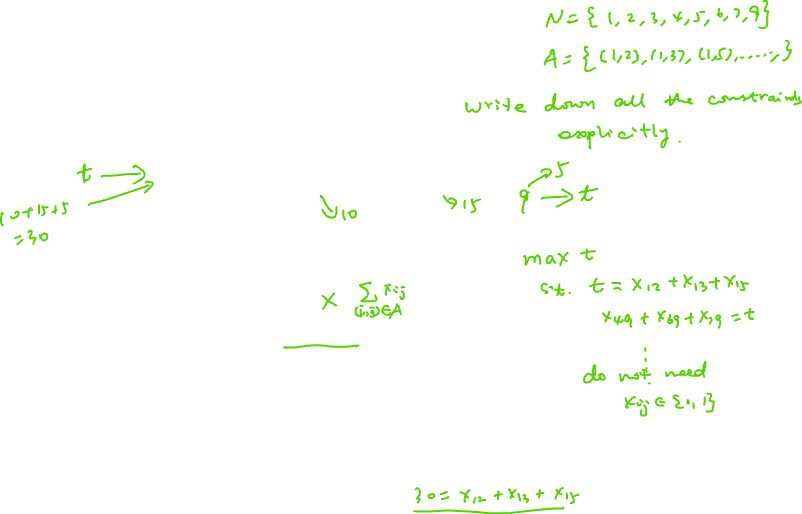 N = { 1, 2, 3, 4, 5, 6, 7, 9}
A = { (1,2), (1,3), (1,5), ....., }
write down all the constraints
explicitly.
t →
10+15+5
= 30
↘10
↘15
9 ↗5
→ t
max t
s.t. t = x12 + x13 + x15
x49 + x69 + x79 = t
⋮
do not need
xij ∈ {0, 1}
X ∑(i,j)∈A xij
30 = x12 + x13 + x15